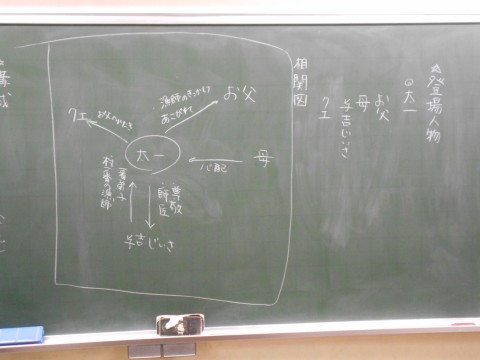 ☆登場人物
○太一
お父
母
与吉じいさ
クエ
相関図
お父
漁師のきっかけ
あこがれ
母
心配
太一
クエ
尊敬
師匠
一番弟子
村一番の漁師
与吉じいさ
☆構成